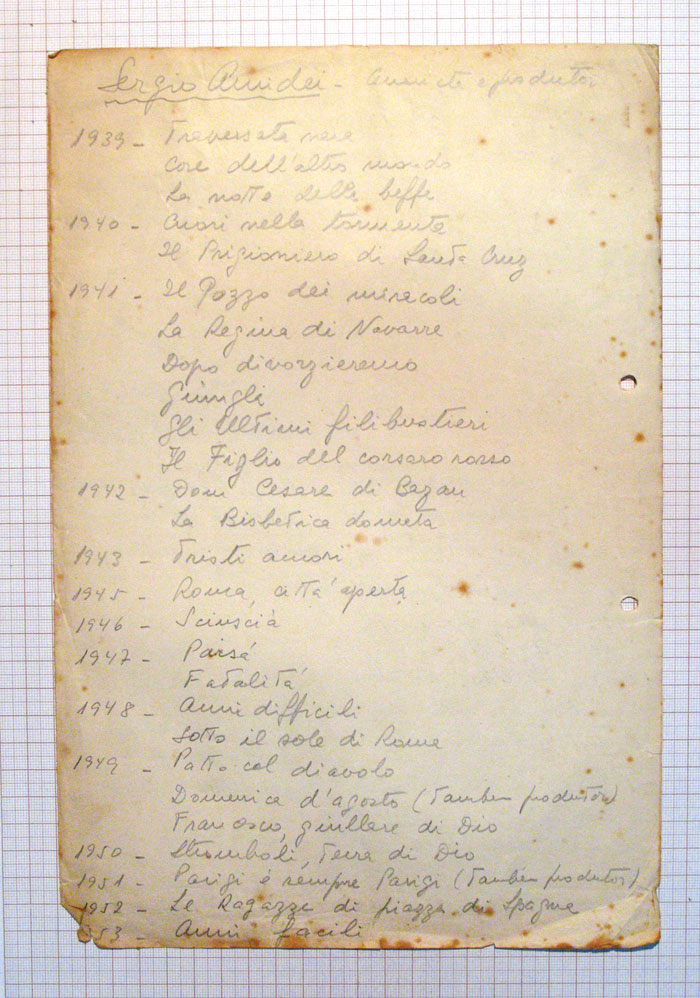 Sergio Amidei - Cineasta e produtor
1939 - Traversata nera
Cose dell'altro mondo
La notte delle beffe
1940 - Cuori nella tormenta
Il Prigioniero di Santa Cruz
1941 - Il Pozzo dei miracoli
La Regina di Navarre
Dopo divorzieremo
Giungla
Gli Ultimi filibustieri
Il Figlio del corsaro rosso
1942 - Don Cesare di Bazan
La Bisbetica domata
1943 - Tristi amori
1945 - Roma, città aperta
1946 - Sciuscià
1947 - Paisá
Fatalità
1948 - Anni difficili
Sotto il sole di Roma
1949 - Patto col diavolo
Domenica d'agosto (Tambem produtor)
Francesco, giullare di Dio
1950 - Stromboli, Terra di Dio
1951 - Parigi é sempre Parigi (Tambem produtor)
1952 - Le Ragazze di piazza di Spagna
953 - Anni facili